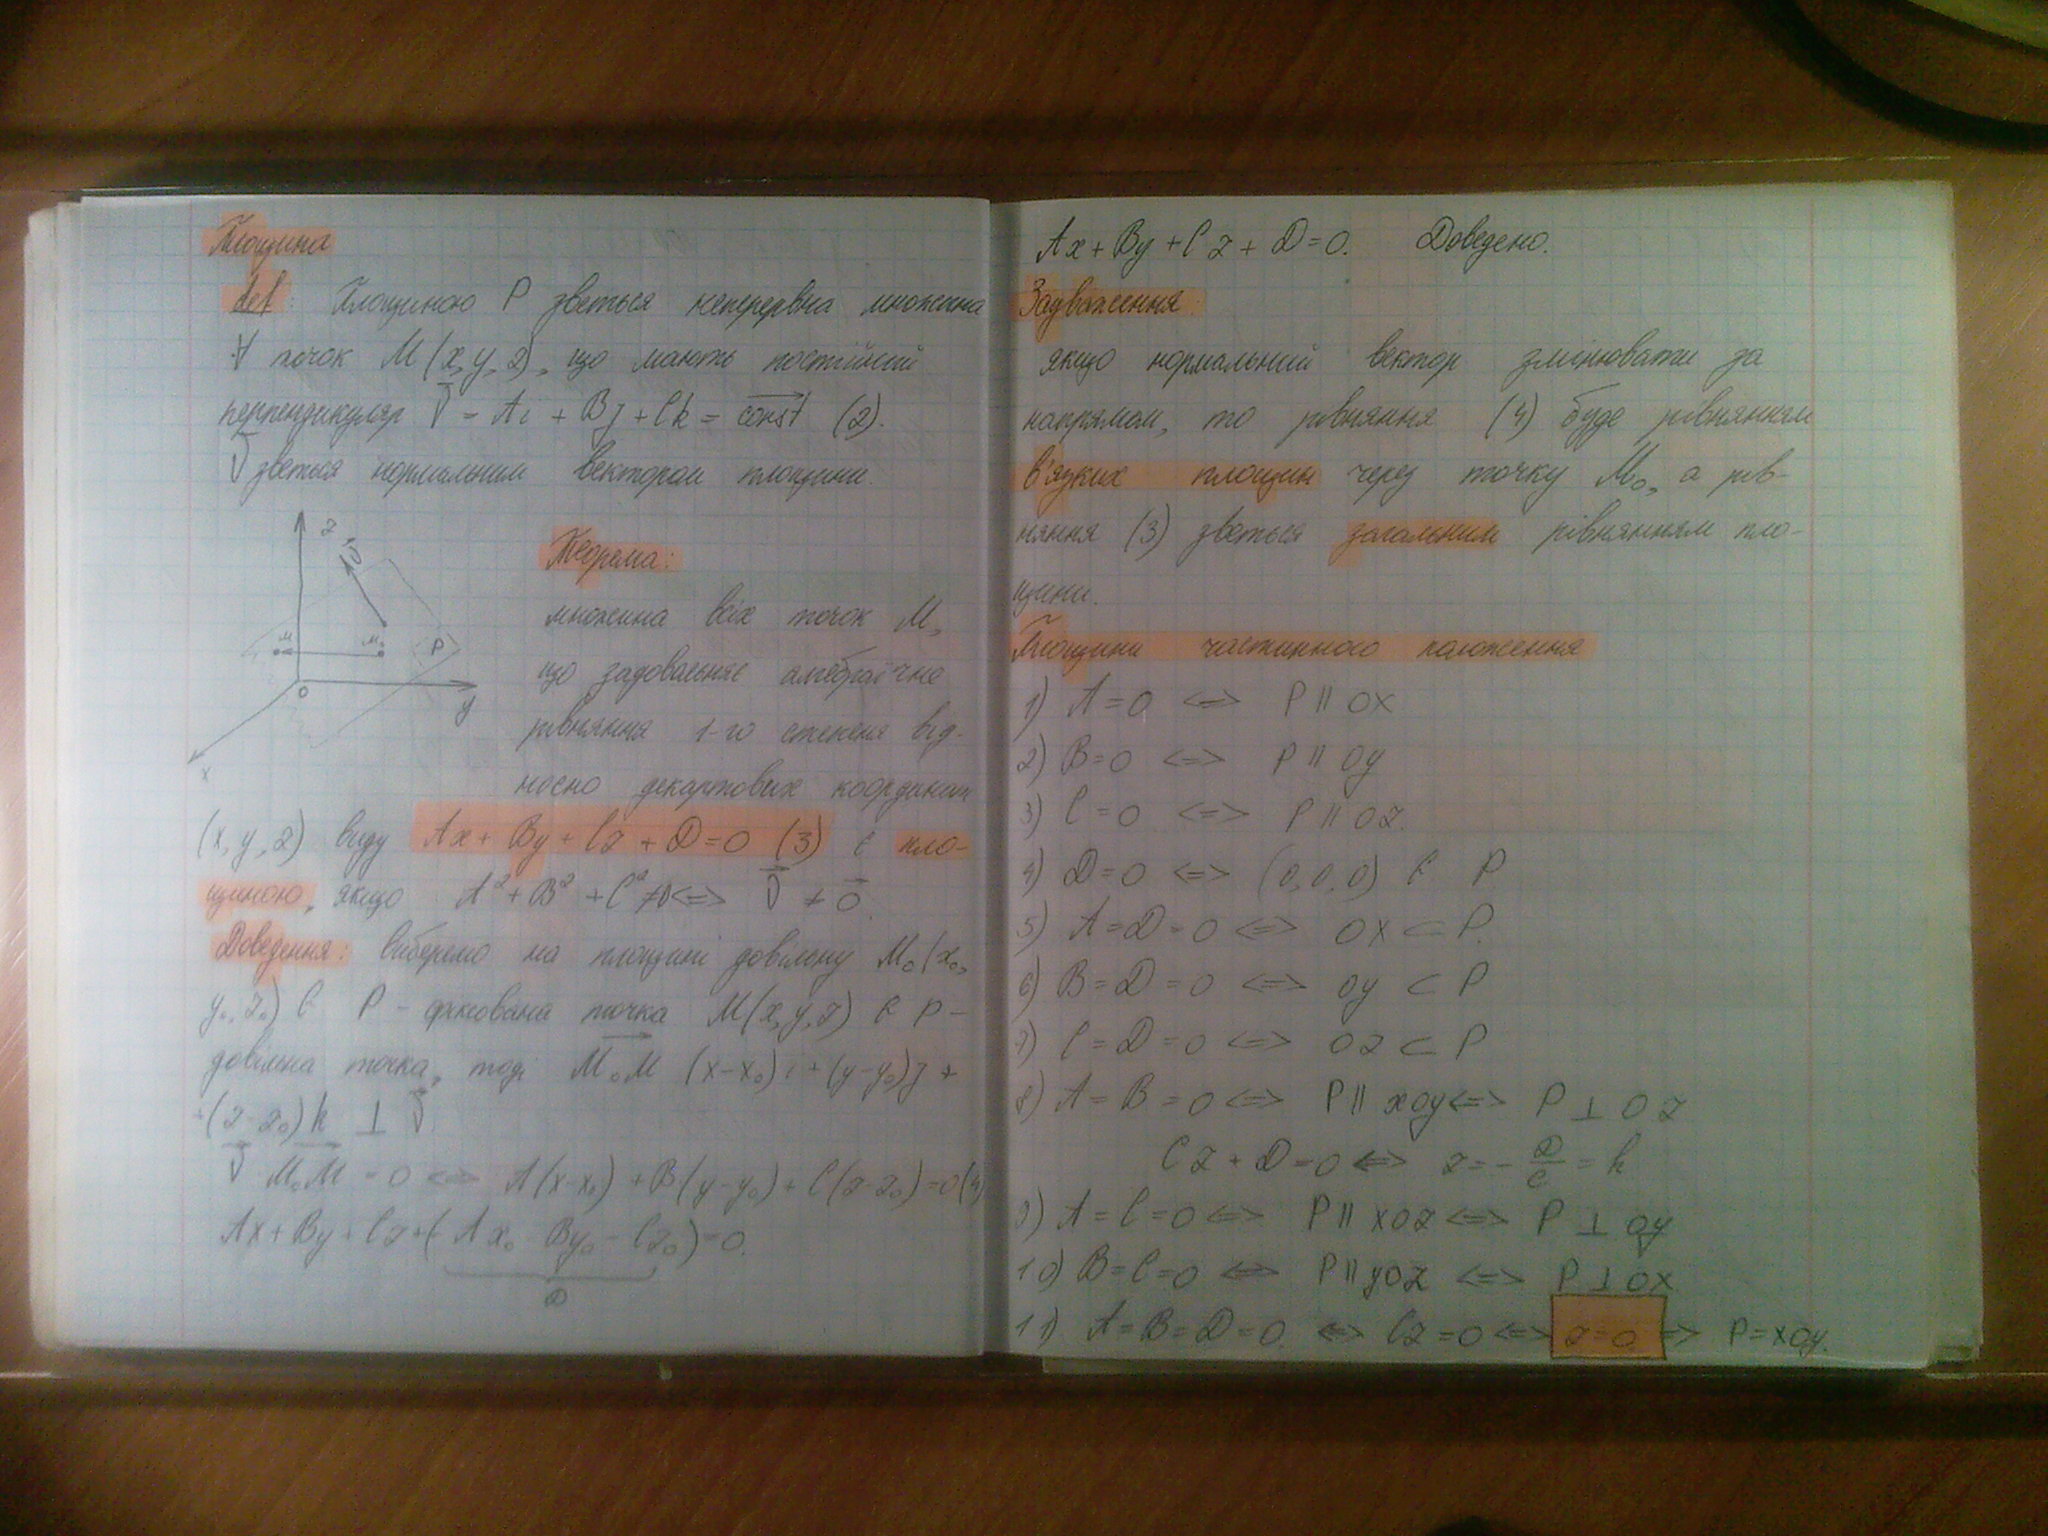 Площина
def: Площиною P зветься неперервна множина
∀ точок M(x, y, z), що мають постійний
перпендикуляр v̄ = Ai + Bj + Ck = const (2).
v̄ зветься нормальним вектором площини.
z
v̄
M
M₀
P
O
y
x
Теорема:
множина всіх точок M,
що задовольняє алгебраїчне
рівняння 1-го степеня від-
носно декартових координат
(x, y, z) виду Ax + By + Cz + D = 0 (3) є пло-
щиною, якщо A² + B² + C² ≠ 0 <=> v̄ ≠ 0̄.
Доведення: виберемо на площині довільну M₀(x₀,
y₀, z₀) ∈ P - фіксована точка M(x, y, z) ∈ P -
довільна точка, тоді M₀M (x-x₀)i + (y-y₀)j +
+(z-z₀)k ⊥ v̄
v̄ M₀M = 0 <=> A(x-x₀) + B(y-y₀) + C(z-z₀) = 0 (4)
Ax + By + Cz + (-Ax₀ - By₀ - Cz₀) = 0.
D
Ax + By + Cz + D = 0. Доведено.
Зауваження:
якщо нормальний вектор змінювати за
напрямом, то рівняння (4) буде рівнянням
в'язких площин через точку M₀, а рів-
няння (3) зветься загальним рівнянням пло-
щини.
Площини частинного положення
1) A = 0 <=> P || OX
2) B = 0 <=> P || OY
3) C = 0 <=> P || OZ.
4) D = 0 <=> (0, 0, 0) ∈ P
5) A = D = 0 <=> OX ⊂ P.
6) B = D = 0 <=> OY ⊂ P
7) C = D = 0 <=> OZ ⊂ P
8) A = B = 0 <=> P || XOY <=> P ⊥ OZ
Cz + D = 0 <=> z = - D/C = h
9) A = C = 0 <=> P || XOZ <=> P ⊥ OY
10) B = C = 0 <=> P || YOZ <=> P ⊥ OX
11) A = B = D = 0 <=> Cz = 0 <=> z = 0 => P = XOY.